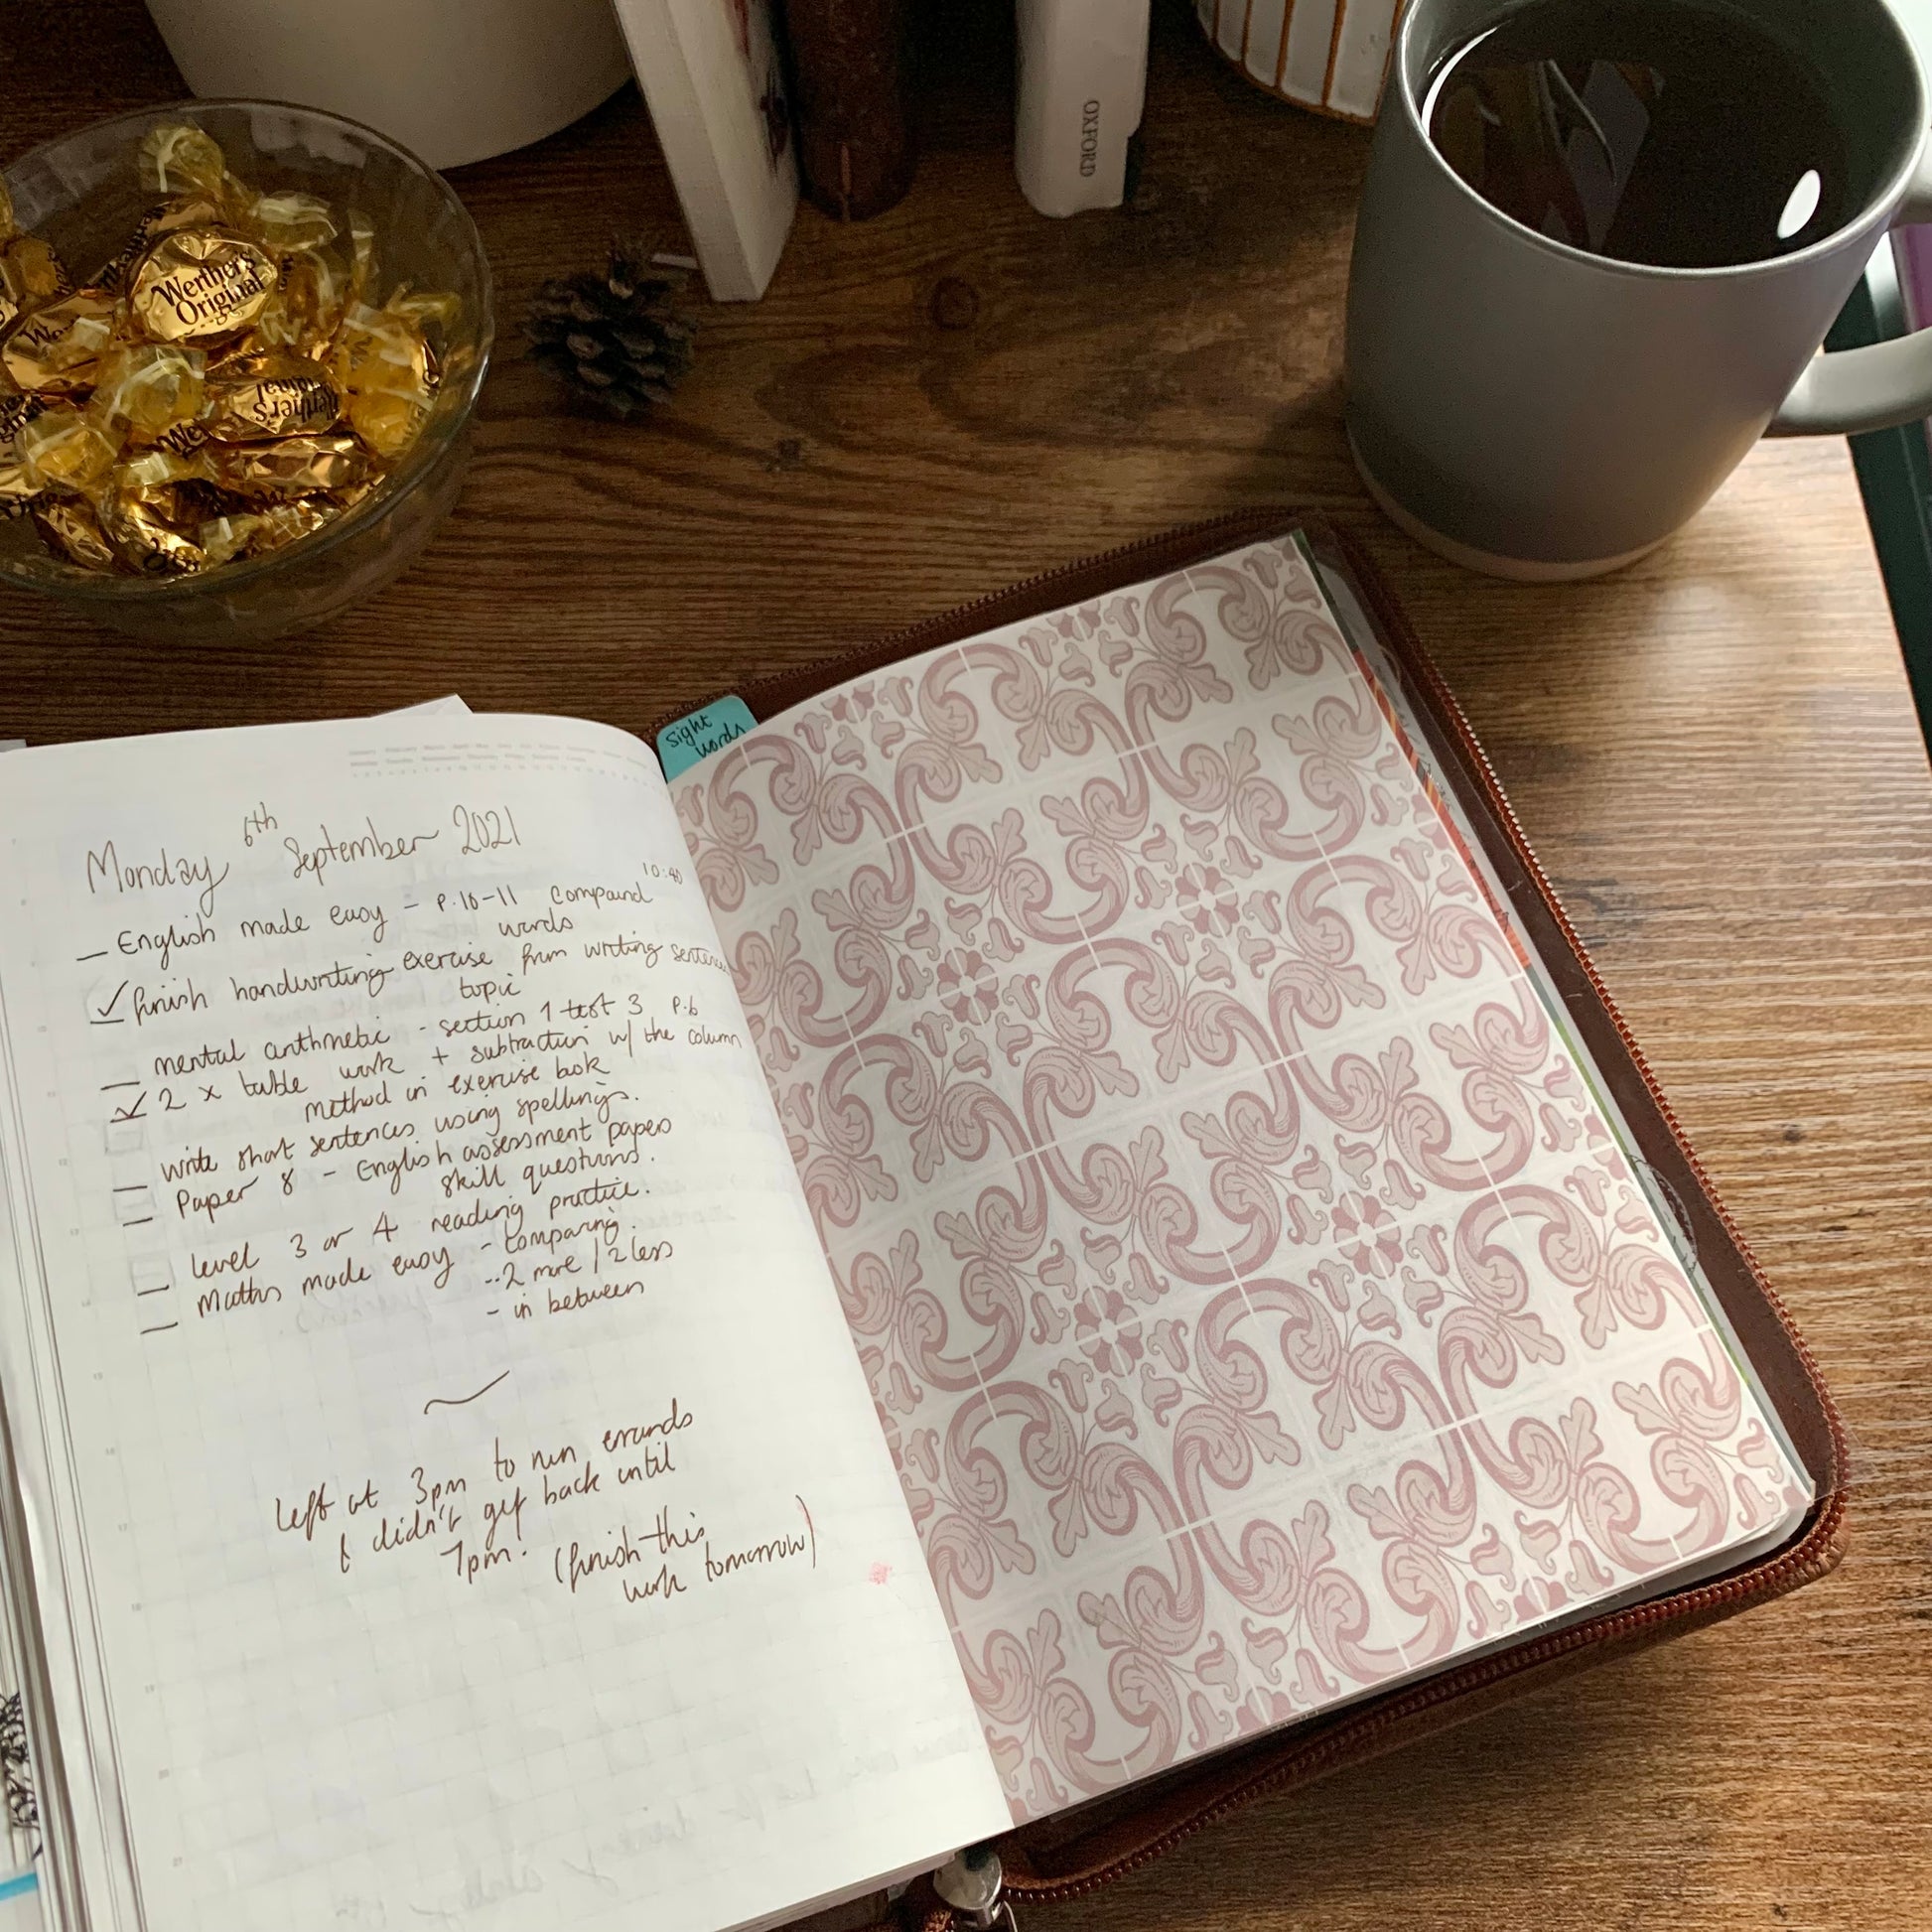 OXFORD
Werther's
Original
Sight
words
Monday 6th September 2021
10:40
— English made easy - P.10-11 Compound
words
✓ finish handwriting exercise from writing sentence
topic
— mental arithmetic - section 1 test 3 P.6
✓ 2 x table work + subtraction w/ the column
method in exercise book
— write short sentences using spellings.
— Paper 8 - English assessment papers
skill questions.
— level 3 or 4 reading practice.
— Maths made easy - comparing.
-- 2 more / 2 less
- in between
left at 3pm to run errands
& didn't get back until
7pm. (finish this
work tomorrow)